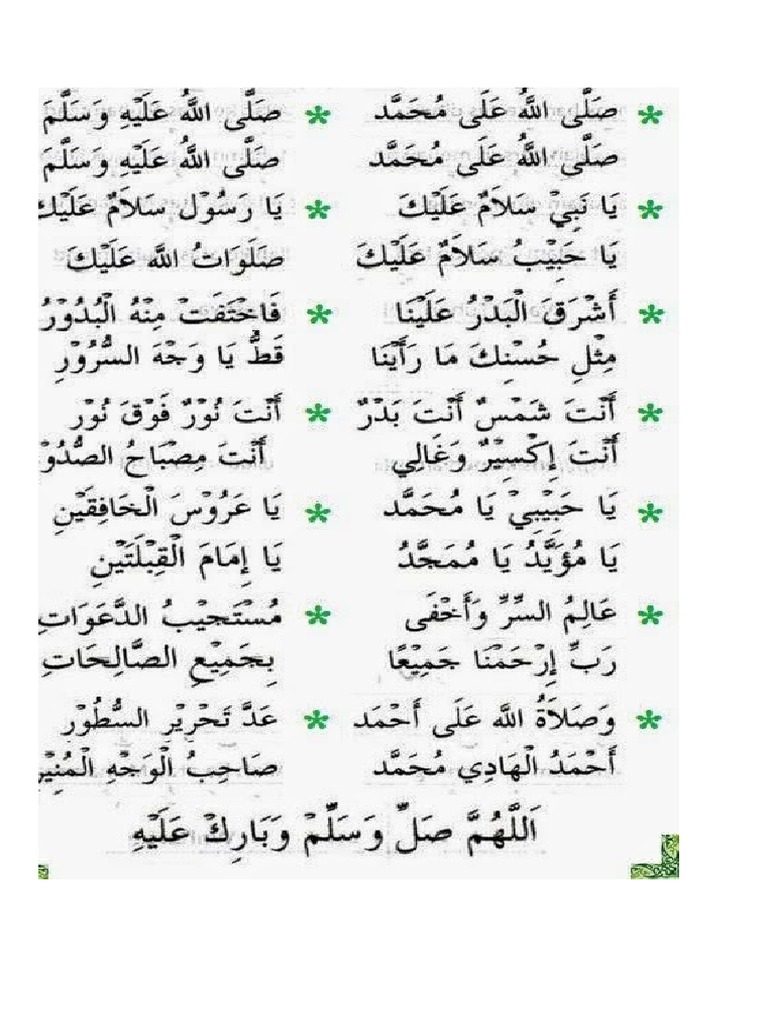 صَلَّى اللهُ عَلَى مُحَمَّد * صَلَّى اللهُ عَلَيْهِ وَسَلَّمَ
صَلَّى اللهُ عَلَى مُحَمَّد صَلَّى اللهُ عَلَيْهِ وَسَلَّمَ
يَا نَبِيْ سَلاَمٌ عَلَيْكَ * يَا رَسُوْل سَلاَمٌ عَلَيْك
يَا حَبِيْبُ سَلاَمٌ عَلَيْكَ صَلَوَاتُ الله عَلَيْكَ
أَشْرَقَ الْبَدْرُ عَلَيْنَا * فَاخْتَفَتْ مِنْهُ الْبُدُوْرُ
مِثْلِ حُسْنِكَ مَا رَأَيْنَا قَطُّ يَا وَجْهَ السُّرُوْرِ
أَنْتَ شَمْسٌ أَنْتَ بَدْرٌ * أَنْتَ نُوْرٌ فَوْقَ نُوْر
أَنْتَ إِكْسِيْرٌ وَغَالِي أَنْتَ مِصْبَاحُ الصُّدُو
يَا حَبِيْبِيْ يَا مُحَمَّد * يَا عَرُوْسَ الْخَافِقَيْنِ
يَا مُؤَيَّدُ يَا مُمَجَّدُ يَا إِمَامَ الْقِبْلَتَيْنِ
عَالِمُ السِّرِّ وَأَخْفَى * مُسْتَجِيْبُ الدَّعَوَاتِ
رَبِّ إِرْحَمْنَا جَمِيْعًا بِجَمِيْعِ الصَّالِحَاتِ
وَصَلاَةُ الله عَلَى أَحْمَد * عَدَّ تَحْرِيْرِ السُّطُوْر
أَحْمَدُ الْهَادِي مُحَمَّد صَاحِبُ الْوَجْهِ الْمُنِيْر
اَللَّهُمَّ صَلِّ وَسَلِّمْ وَبَارِكْ عَلَيْهِ